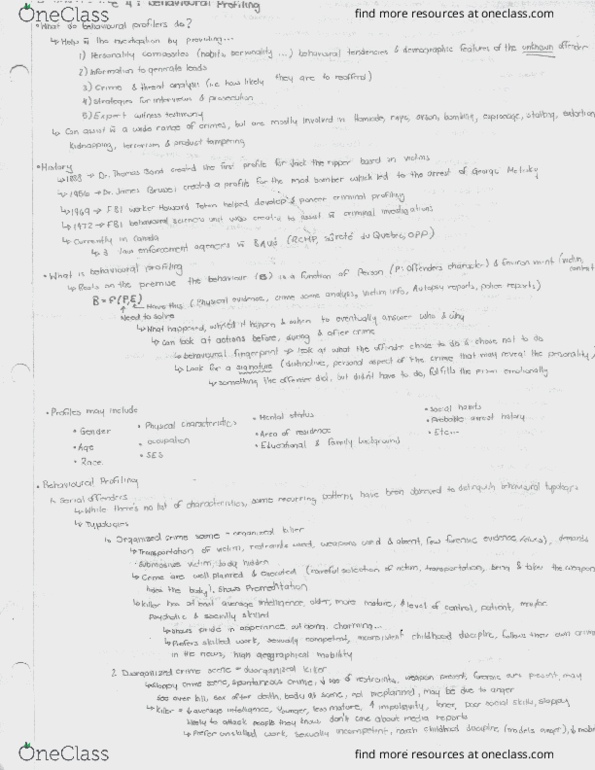 OneClass
find more resources at oneclass.com
4: Behavioural Profiling
• What do behavioural profilers do?
↳ Helps w the investigation by providing...
1) Personality composites (habits, personality ...) behavioural tendencies & demographic features of the unknown offender
2) Information to generate leads
3) Crime & threat analysis (i.e how likely they are to reoffend)
4) Strategies for interview & prosecution
5) Expert witness testimony
↳ Can assist w a wide range of crimes, but are mostly involved in homicide, rape, arson, bombing, espionage, stalking, extortion
kidnapping, terrorism & product tampering
• History
↳ 1888 → Dr. Thomas Bond created the first profile for Jack the ripper based on victims
↳ 1956 → Dr. James Brussel created a profile for the mad bomber which led to the arrest of George
↳ 1969 → FBI worker Howard Teten helped develop & criminal profiling
↳ 1972 → FBI behavioural sciences unit was created to assist w criminal investigations
↳ Currently in Canada
↳ 3 law enforcement agencies w (RCMP, sûreté du Quebec, OPP)
• What is behavioural profiling
↳ on the premise the behaviour (B) is a function of Person (P: offenders character) & Environment (victim,
B = F(P,E)
Have this (Physical evidence, crime scene analysis, victim info, Autopsy reports, police reports)
Need to solve
↳ What happened, why did it happen & when to eventually answer who & why
↳ can look at actions before, during & after crime
↳ behavioural fingerprint → look at what the offender chose to do & chose not to do
↳ Look for a signature (distinctive, personal aspect of the crime that may reveal the personality)
↳ something the offender did, but didn't have to do, fulfills the person emotionally
• Profiles may include
• Gender
• Age
• Race
• Physical characteristics
• occupation
• SES
• Mental status
• Area of residence
• Educational & family background
• Social habits
• Probable arrest history
• Etc...
• Behavioural Profiling
↳ Serial offenders
↳ While there's no list of characteristics, some recurring patterns have been observed to distinguish behavioural typology
↳ Typologies
1. Organized crime scene = organized killer
↳ Transportation of victim, restraints used, weapons used & absent, few forensic evidence, demands
submissive victim, body hidden
↳ Crime are well planned & executed (careful selection of victim, transportation, bring & take the weapon,
hides the body), shows Premeditation
↳ Killer has at least average intelligence, older, more mature, level of control, patient, maybe
psychotic & socially skilled
↳ shows pride in appearance outgoing, charming...
↳ Prefers skilled work, sexually competent, inconsistent childhood discipline, follows their own crimes
in the news, high geographical mobility
2. Disorganized crime scene = disorganized killer
↳ Sloppy crime scene, spontaneous crime, ↓ use of restraints, weapon present, forensic are present, may
see over kill, sex after death, body at scene, not preplanned, may be due to anger
↳ Killer = ↓ average intelligence, younger, less mature, ↑ impulsivity, loner, poor social skills, sloppy
likely to attack people they know don't care about media reports
↳ Prefer unskilled work, sexually incompetent, harsh childhood discipline
OneClass
find more resources at oneclass.com